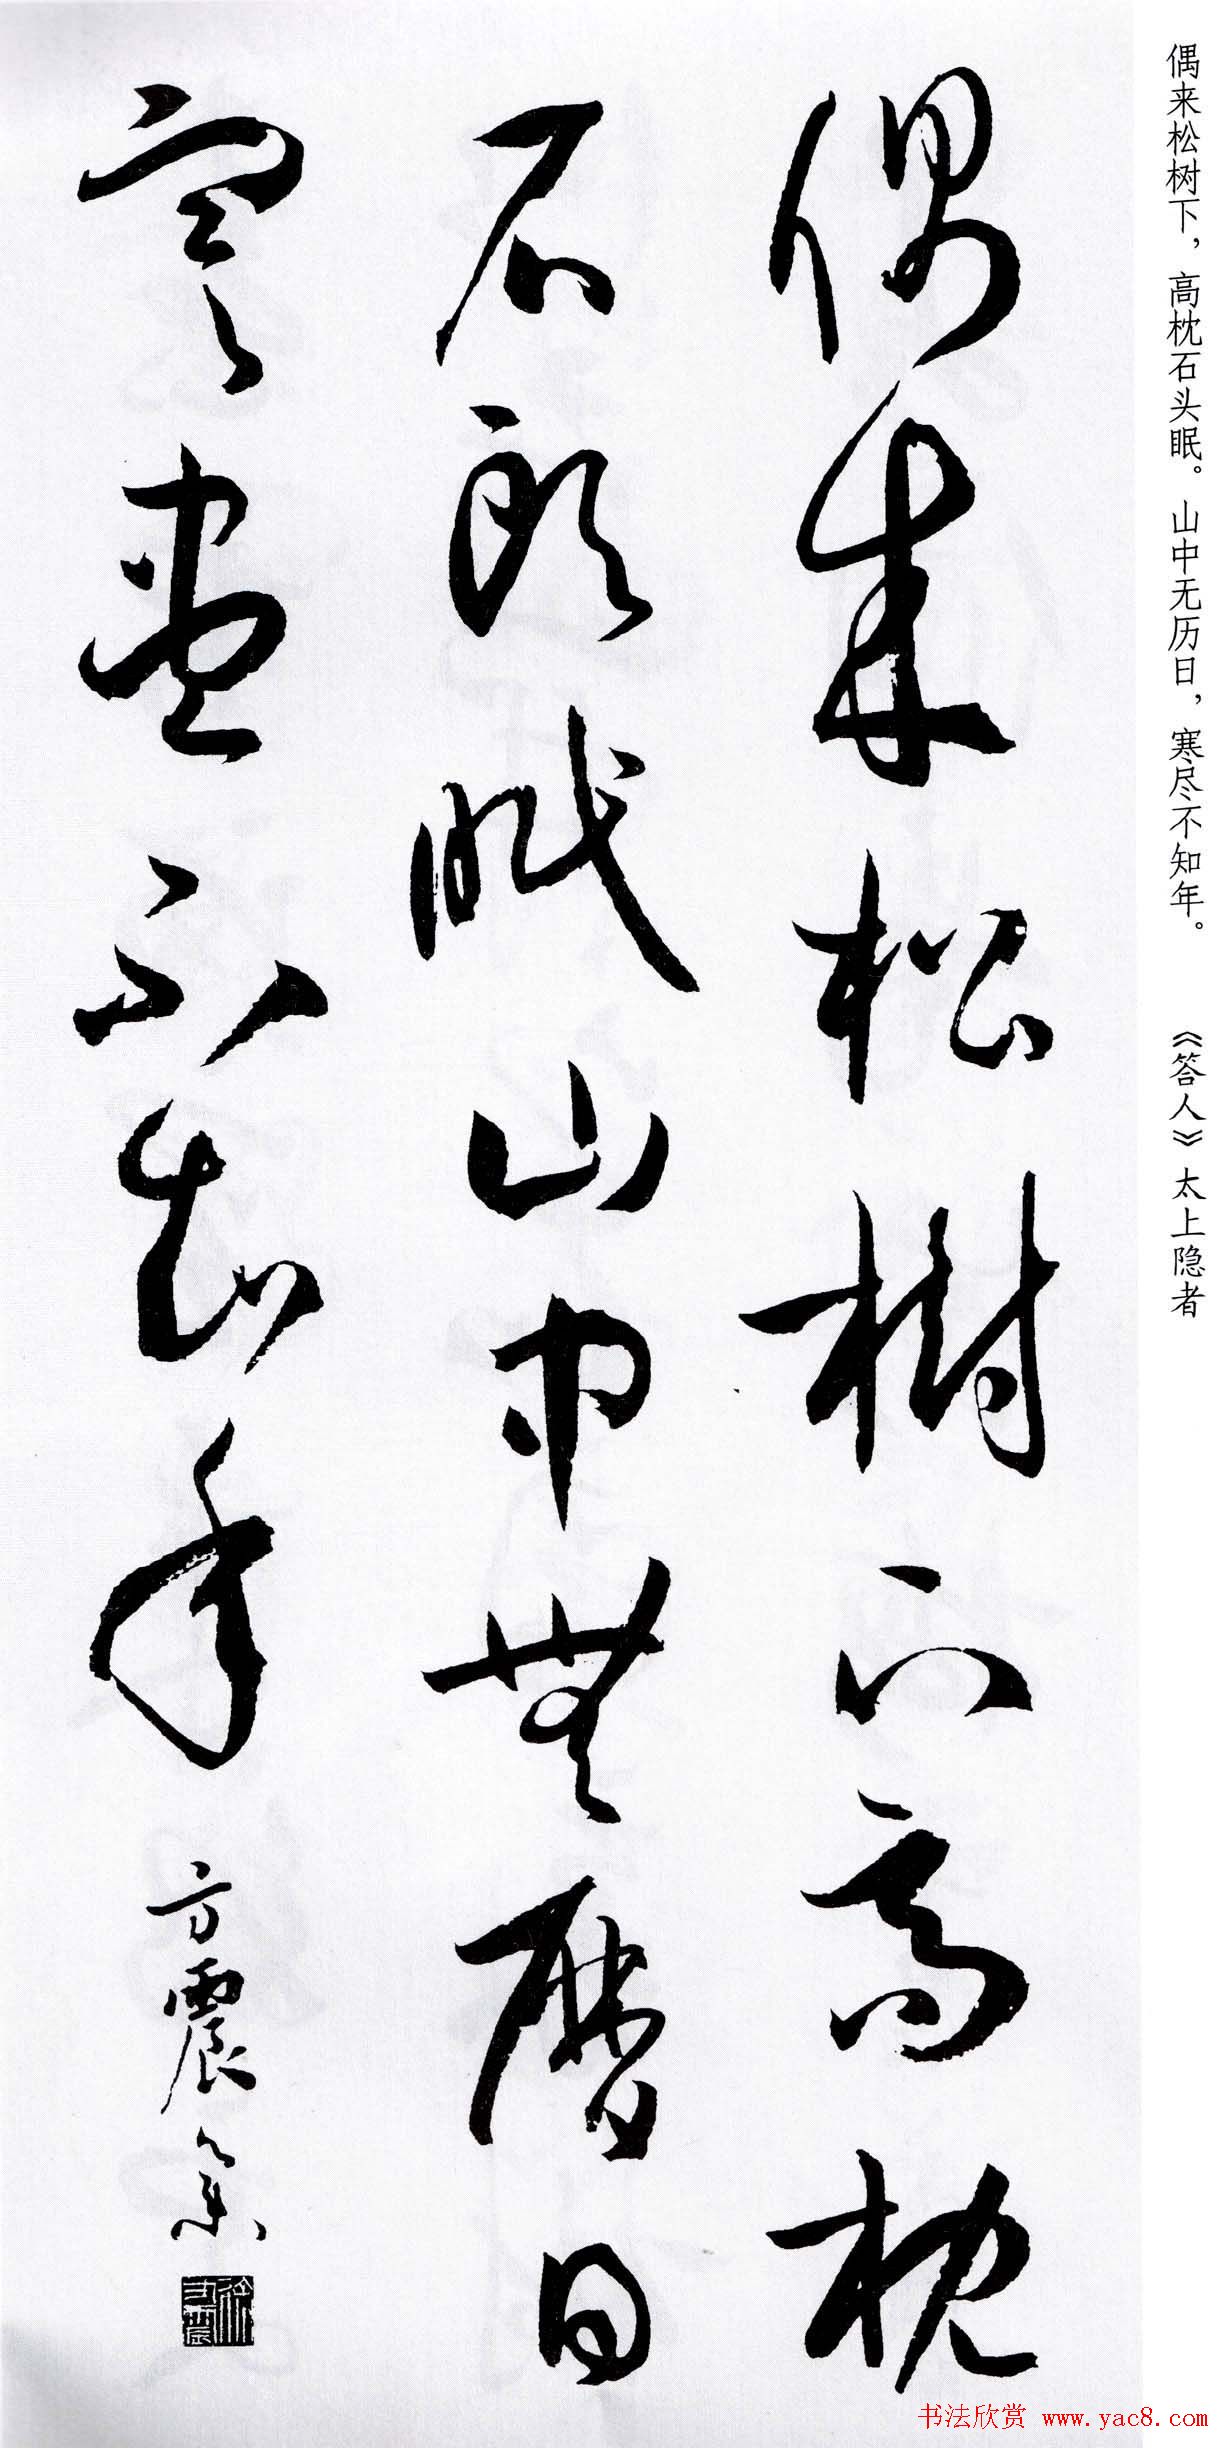 偶来松树下，高枕石头眠。山中无历日，寒尽不知年。 《答人》太上隐者
偶來松樹下高枕
石頭眠山中無曆日
寒盡不知年 方震
书法欣赏 www.yac8.com